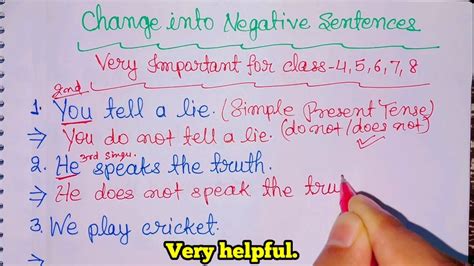 Change into Negative Sentences
Very Important for class-4,5,6,7,8
2nd
1. You tell a lie. (Simple Present Tense)
⇒ You do not tell a lie. (do not/does not)
3rd singu.
2. He speaks the truth.
⇒ He does not speak the tru
3. We play cricket.
⇒
Very helpful.